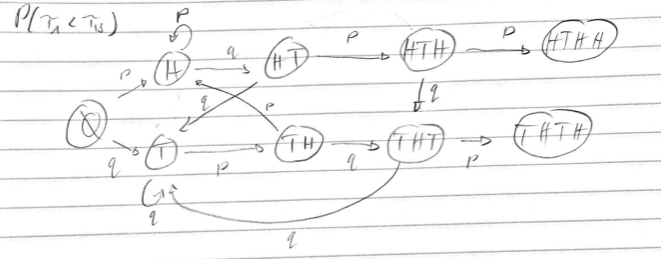 P(τ_A < τ_B)
p
H q HT p HTH p HTHH
p q p q
∅
q T p TH q THT p THTH
q
q